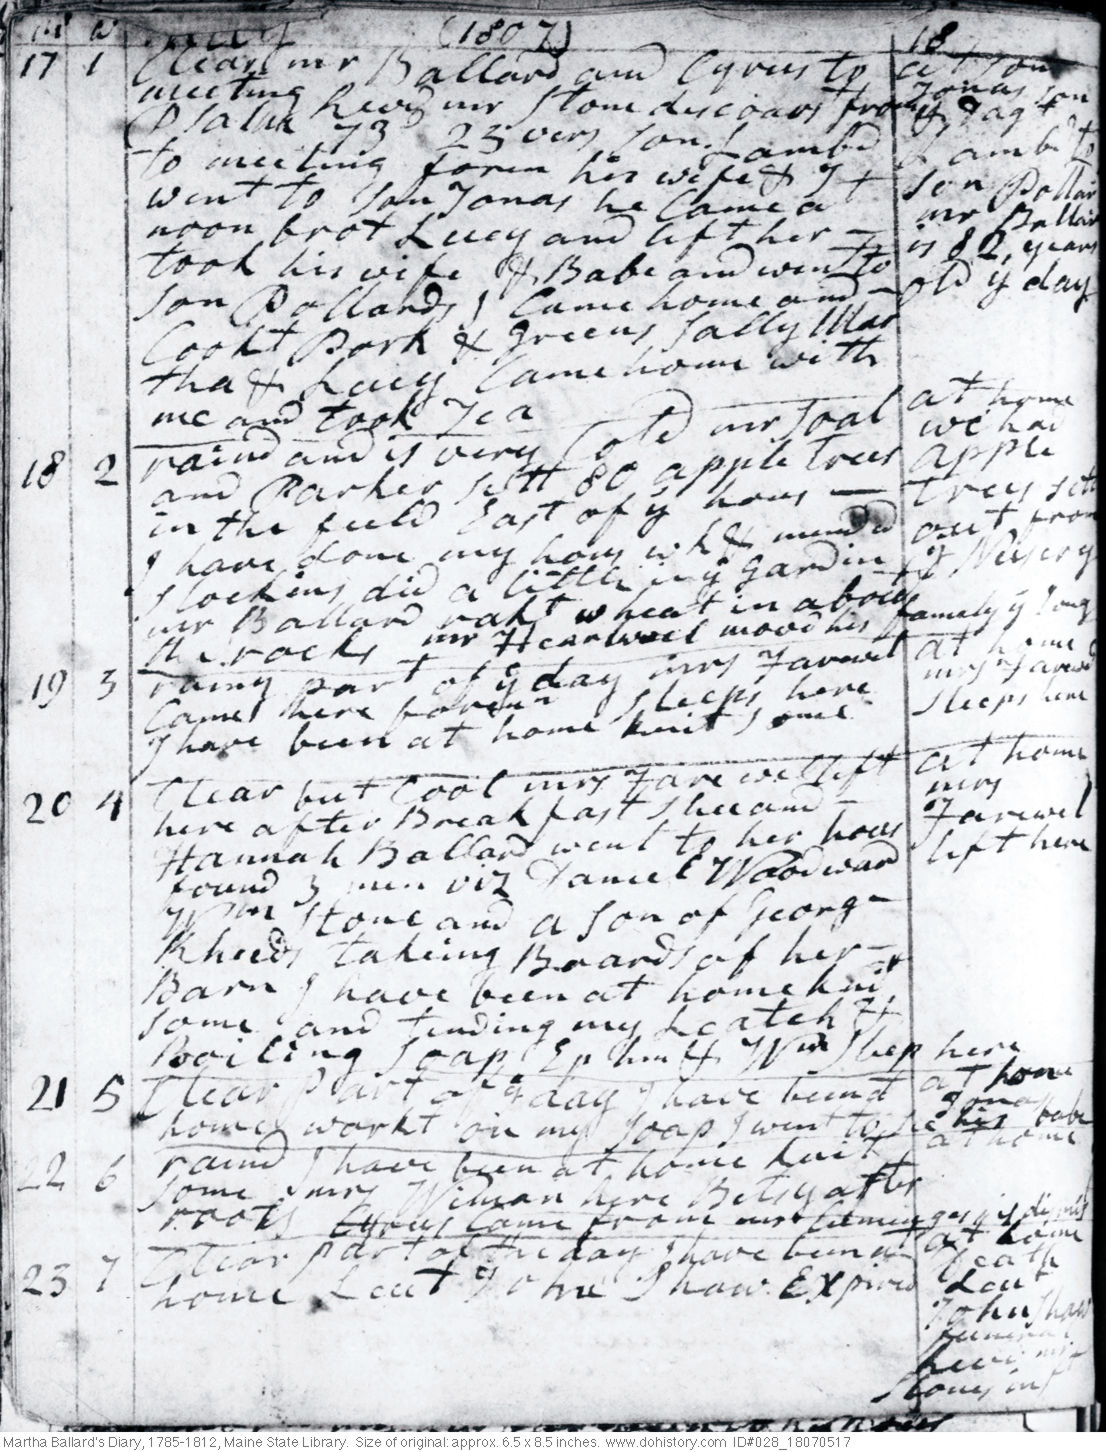 m w May (1807) 18
17 1 Clear mr Ballard and Cyrus to
meeting heird mr Stone discoars from
Psalm 73 23 vers son Lambd
to meeting foren his wife & I
went to son Jonas he Came at
noon brot Lucy and left her
took his wife & Babe and went to
son Pollards I Came home and
Cookt Pork & greens Sally Mar
tha & Lucy Came home with
me and took Tea
at son
Jonas son
Lambd to
son Pollard
mr Ballard
is 82 years
old ys day
18 2 raind and is very Cold mr Soal
and Parker sett 80 apple Trees
in the field East of ye hous
I have done my hous wk & mended
stockins did a little in ye gardin
mr Ballard rakt wheat in above
the rocks mr Heartwel moovd his family ys long
at home
we had
apple
trees sett
out from
ye Nursery
19 3 rainy part of ye day mrs Farewel
Came here foren sleeps here
I have been at home knit some
at home
mrs Farewel
sleeps here
20 4 Clear but Cool mrs Farewell left
here after Breakfast shee and
Hannah Ballard went to her hous
found 3 men viz Daniel Woodward
Wm Stone and a son of Georg
Rheeds takeing Boards of her
Barn I have been at home knit
some and tending my Leatch &
Boiling soap Ephm & Wm sleep here
at home
mrs
Farewel
left here
21 5 Clear part of ye day I have been at
home workt on my soap I went to see his babe
at home
Jonas
22 6 raind I have been at home knit
some mrs Wiman here Betsy after
roots Cyrus Came from mr
at home
23 7 Clear part of the day I have been at
home Leut John Shaw Expired
at home
Death
Leut
John Shaw
funeral
heird mr
Stones inst
Martha Ballard's Diary, 1785-1812, Maine State Library. Size of original: approx. 6.5 x 8.5 inches. www.dohistory.com ID#028_18070517